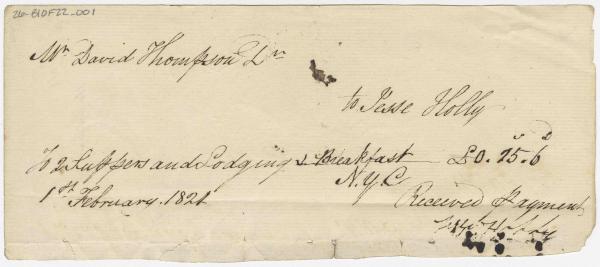 26-B10F22_001
Mr David Thompson Dr
to Jesse Holly
s d
To 2 Suppers and Lodging & Breakfast — £0.15.6
N.Y.C
1st February. 1821
Received Payment
Holly